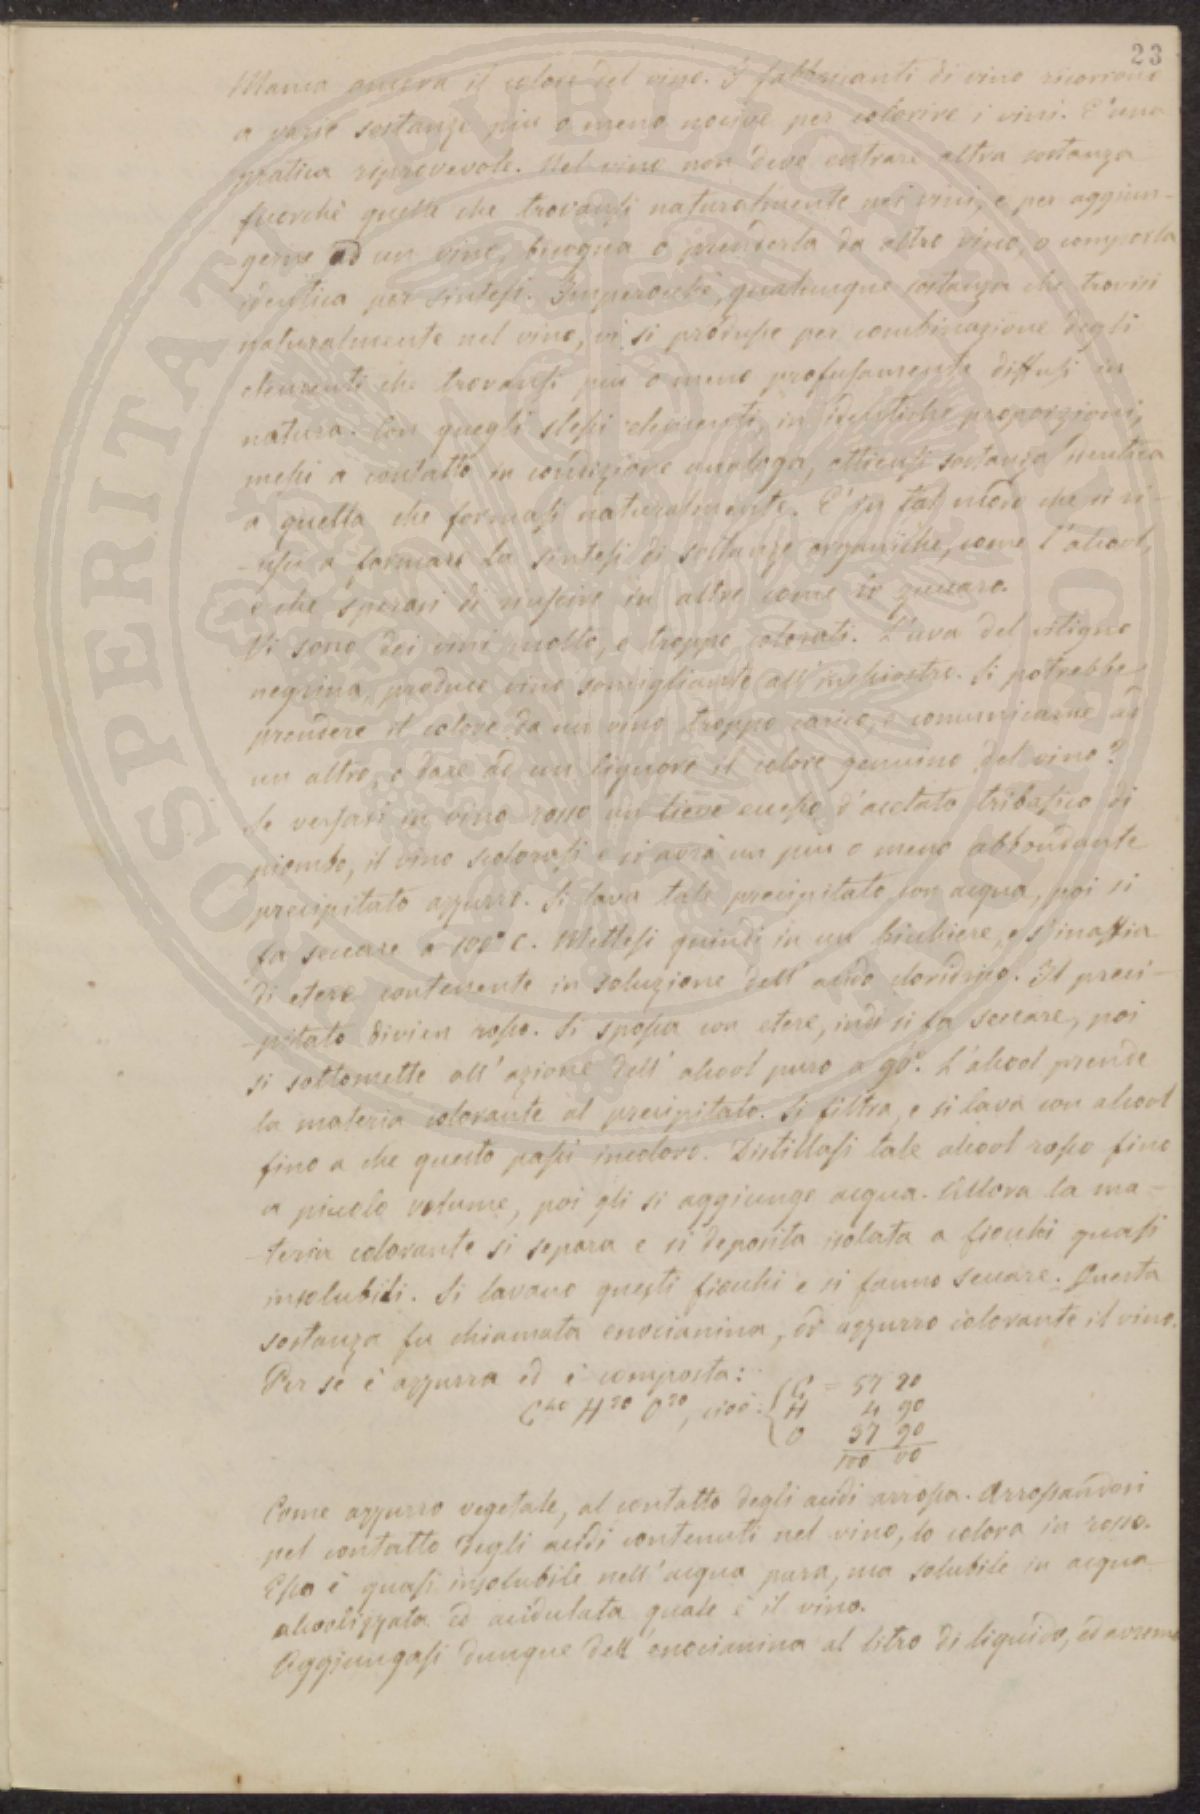 23
Manca ancora il colore del vino. I fabbricanti di vino ricorrono
a varie sostanze più o meno nocive per colorire i vini. È una
pratica riprovevole. Nel vino non deve entrare altra sostanza
fuorchè quelle che trovansi naturalmente nei vini, e per aggiun-
gerne ad un vino, bisogna o prenderla da altro vino, o comporla
identica per sintesi. Imperocchè, qualunque sostanza che trovisi
naturalmente nel vino, vi si produsse per combinazione degli
elementi che trovansi più o meno profusamente diffusi in
natura. Con quegli stessi elementi, in identiche proporzioni,
messi a contatto in condizione analoga, ottiensi sostanza identica
a quella che formasi naturalmente. È in tal modo che si ri-
-uscì a formare la sintesi di sostanze organiche, come l'alcool,
e che sperasi di riuscire in altre come lo zuccaro.
Vi sono dei vini molto, e troppo colorati. L'uva del vitigno
negrina, produce vino somigliante all'inchiostro. Si potrebbe
prendere il colore da un vino troppo carico, e comunicarne ad
un altro, o dare ad un liquore il colore genuino del vino?
Se versasi in vino rosso un lieve eccesso d'acetato tribasico di
piombo, il vino scolorasi e si avrà un più o meno abbondante
precipitato azzurro. Si lava tale precipitato con acqua, poi si
fa seccare a 100° C. Mettesi quindi in un bicchiere, e s'inaffia
di etere contenente in soluzione dell'acido cloridrico. Il preci-
-pitato divien rosso. Si spossa con etere, indi si fa seccare, poi
si sottomette all'azione dell'alcool puro a 90°. L'alcool prende
la materia colorante al precipitato. Si filtra, e si lava con alcool
fino a che questo passi incoloro. Distillasi tale alcool rosso fino
a piccolo volume, poi gli si aggiunge acqua. Allora la ma-
-teria colorante si separa e si deposita isolata a fiocchi quasi
insolubili. Si lavano questi fiocchi e si fanno seccare. Questa
sostanza fu chiamata enocianina, od azzurro colorante il vino.
Per sè è azzurra ed è composta:
C⁴⁰ H²⁰ O²⁰, cioè: { C = 57 20
H 4 90
O 37 90
100 00
Come azzurro vegetale, al contatto degli acidi arrossa. Arrossandosi
pel contatto degli acidi contenuti nel vino, lo colora in rosso.
Essa è quasi insolubile nell'acqua pura, ma solubile in acqua
alcoolizzata ed acidulata quale è il vino.
Aggiungasi dunque dell'enocianina al litro di liquido, ed avremo
PROSPERITATI PUBLICAE AUGENDAE